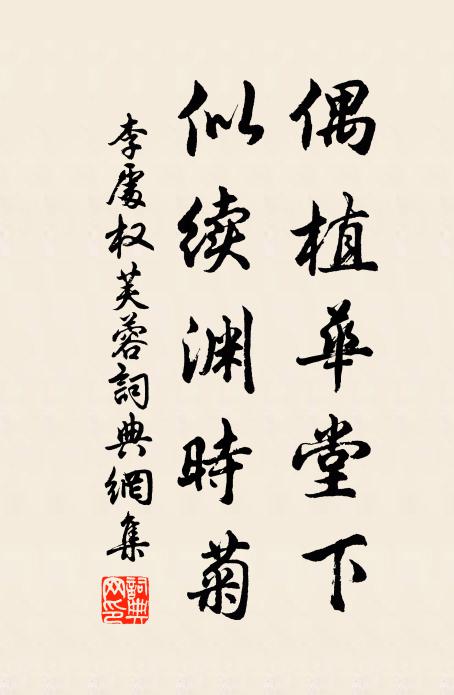 偶植華堂下
似续渊時菊
李處权芙蓉詞典網集
詞典网印